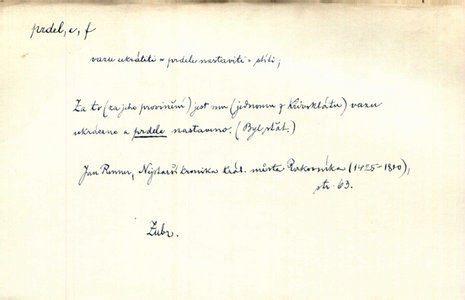 prdel, e, f
vazu ukrátiti a prdele nastaviti = stíti;
Za to (za jeho provinění) jest mu (jednomu z Křivoklátu) vazu
ukráceno a prdele nastaveno. (Byl stát.)
Jan Renner, Nejstarší kronika král. města Rakovníka (1425–1800),
str. 63.
Zubr.